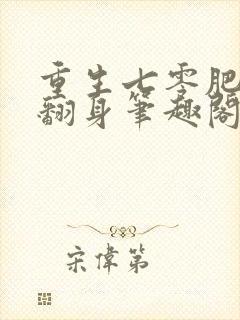 重生七零肥
翻身笔趣阁
宋偉第